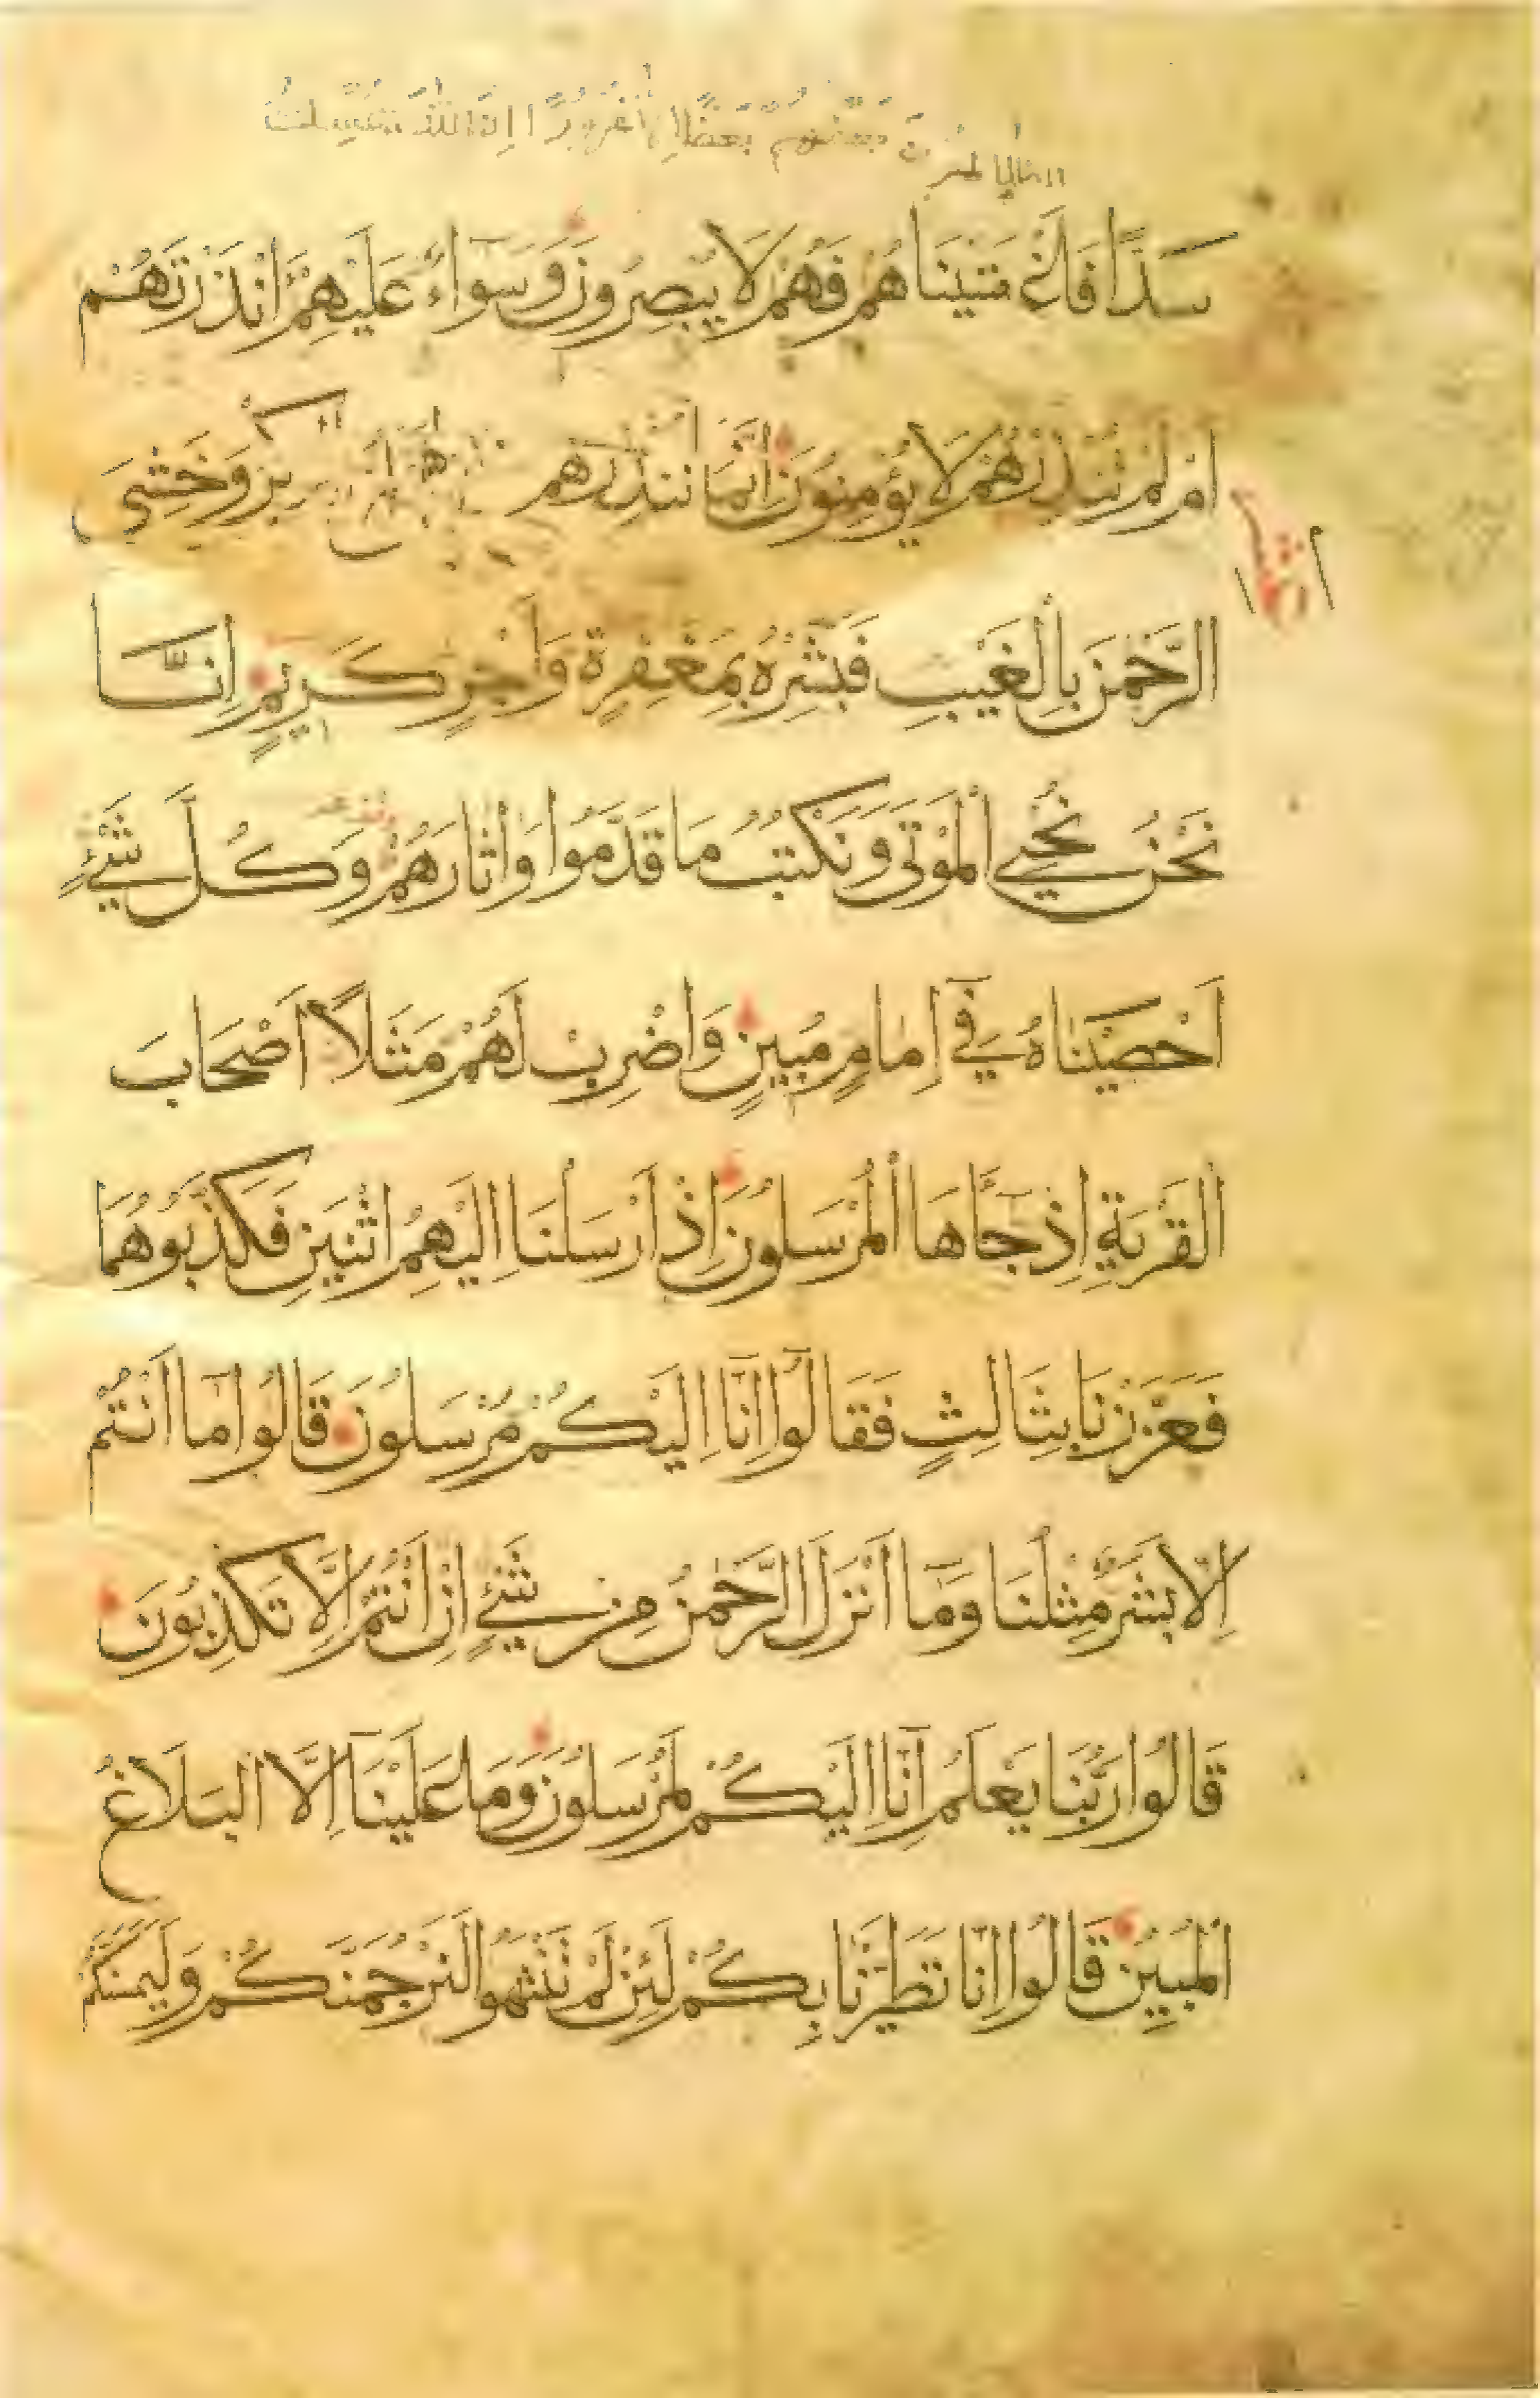 الظالمون بعضهم بعضا الا غرورا ان الله يمسك
سَدًّا فَاَغْشَيْنَاهُمْ فَهُمْ لَا يُبْصِرُونَ وَسَوَآءٌ عَلَيْهِمْ ءَاَنْذَرْتَهُمْ
اَمْ لَمْ تُنْذِرْهُمْ لَا يُؤْمِنُونَ اِنَّمَا تُنْذِرُ وَخَشِىَ
الرَّحْمٰنَ بِالْغَيْبِ فَبَشِّرْهُ بِمَغْفِرَةٍ وَاَجْرٍ كَرِيمٍ اِنَّا
نَحْنُ نُحْيِي الْمَوْتَى وَنَكْتُبُ مَا قَدَّمُوا وَاٰثَارَهُمْ وَكُلَّ شَيْءٍ
اَحْصَيْنَاهُ فِيٓ اِمَامٍ مُبِينٍ وَاضْرِبْ لَهُمْ مَثَلًا اَصْحَابَ
الْقَرْيَةِ اِذْ جَآءَهَا الْمُرْسَلُونَ اِذْ اَرْسَلْنَا اِلَيْهِمُ اثْنَيْنِ فَكَذَّبُوهُمَا
فَعَزَّزْنَا بِثَالِثٍ فَقَالُوٓا اِنَّآ اِلَيْكُمْ مُرْسَلُونَ قَالُوا مَآ اَنْتُمْ
اِلَّا بَشَرٌ مِثْلُنَا وَمَآ اَنْزَلَ الرَّحْمٰنُ مِنْ شَيْءٍ اِنْ اَنْتُمْ اِلَّا تَكْذِبُونَ
قَالُوا رَبُّنَا يَعْلَمُ اِنَّآ اِلَيْكُمْ لَمُرْسَلُونَ وَمَا عَلَيْنَآ اِلَّا الْبَلَاغُ
الْمُبِينُ قَالُوا اِنَّا تَطَيَّرْنَا بِكُمْ لَئِنْ لَمْ تَنْتَهُوا لَنَرْجُمَنَّكُمْ وَلَيَمَسَّنَّكُمْ